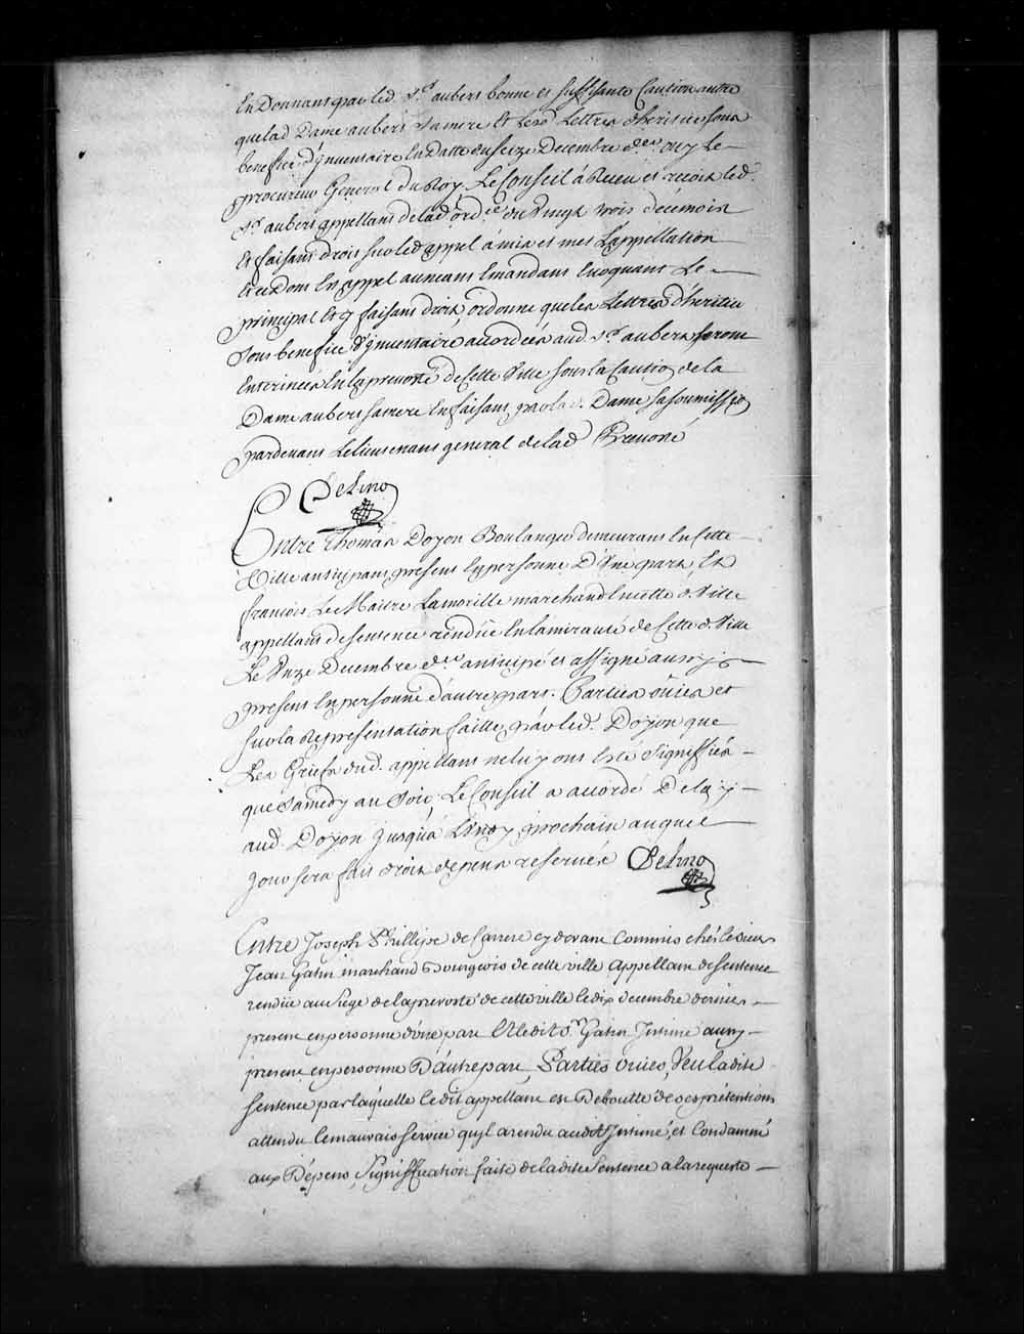 En Donnant par led. Sr. aubert bonne et suffisante Caution autre
que lad. Dame aubert sa mere Et lesd. Lettres d'heritier sous
benefice d'ynventaire En datte du seize Decembre der. ouy Le
procureur General du Roy. Le Conseil à Receu et recoit led.
Sr. aubert appellant de lad. ord.ce du Vingt trois décembre
Et faisant droit sur led. appel à mis et met L'appellation
Et ce dont Est appel au neant Emandant Evoquant Le
principal Et y faisant droit, ordonne que les Lettres d'heritier
sous benefice d'ynventaire accordées aud. Sr. aubert seront
Enterinées En la prevosté de Cette Ville sous la Caution de la
Dame aubert sa mere En faisant par lad. Dame sa soumission
pardevant Le lieutenant general de lad. Prevosté
DeLino
Entre Thomas Doyon Boulanger demeurant En Cette
Ville anticipant present En personne D'Une part, Et
françois Le Maitre Lamorille marchand En cette d. Ville
appellant de sentence rendüe En L'amirauté de Cette d. Ville
Le Onze Decembre der. anticipé et assigné aussy
present En personne d'autre part. Parties oüies et
sur la Representation faitte par led. Doyon que
Les Griefs dud. appellant ne luy ont Esté Signiffiés
que Samedy au Soir, Le Conseil a accordé Delay
aud. Doyon jusqu'à Lundy prochain auquel
Jour sera fait droit depens reservés DeLino
Entre Joseph Phillipe de Carrere cy devant Commis chés le sieur
Jean Gatin marchand Bourgeois de cette ville appellant de sentence
rendüe au Siege de la prevosté de cette ville le dix decembre dernier
present en personne d'une part Et ledit Sr. Gatin Intimé aussy
present en personne D'autre part, Parties ouies, Veu la dite
sentence par laquelle ledit appellant est Deboutté de ses prétentions
attendu le mauvais service qu'yl a rendu audit Intimé, et Condamné
aux Dépens, Signiffication faite de la dite Sentence a la requeste